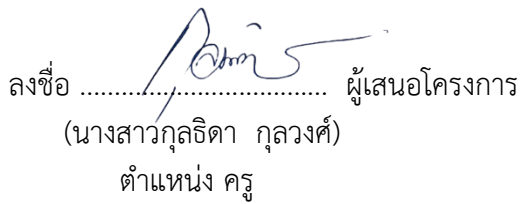 ลงชื่อ .................................... ผู้เสนอโครงการ
(นางสาวกุลธิดา กุลวงศ์)
ตำแหน่ง ครู